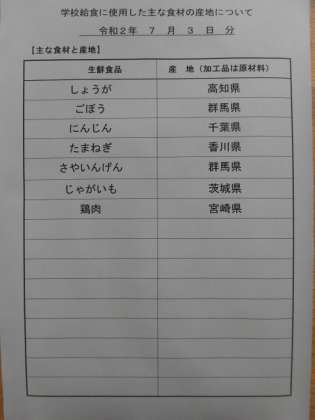 学校給食に使用した主な食材の産地について
令和2年 7 月 3 日 分
【主な食材と産地】
生鮮食品 産 地（加工品は原材料）
しょうが 高知県
ごぼう 群馬県
にんじん 千葉県
たまねぎ 香川県
さやいんげん 群馬県
じゃがいも 茨城県
鶏肉 宮崎県